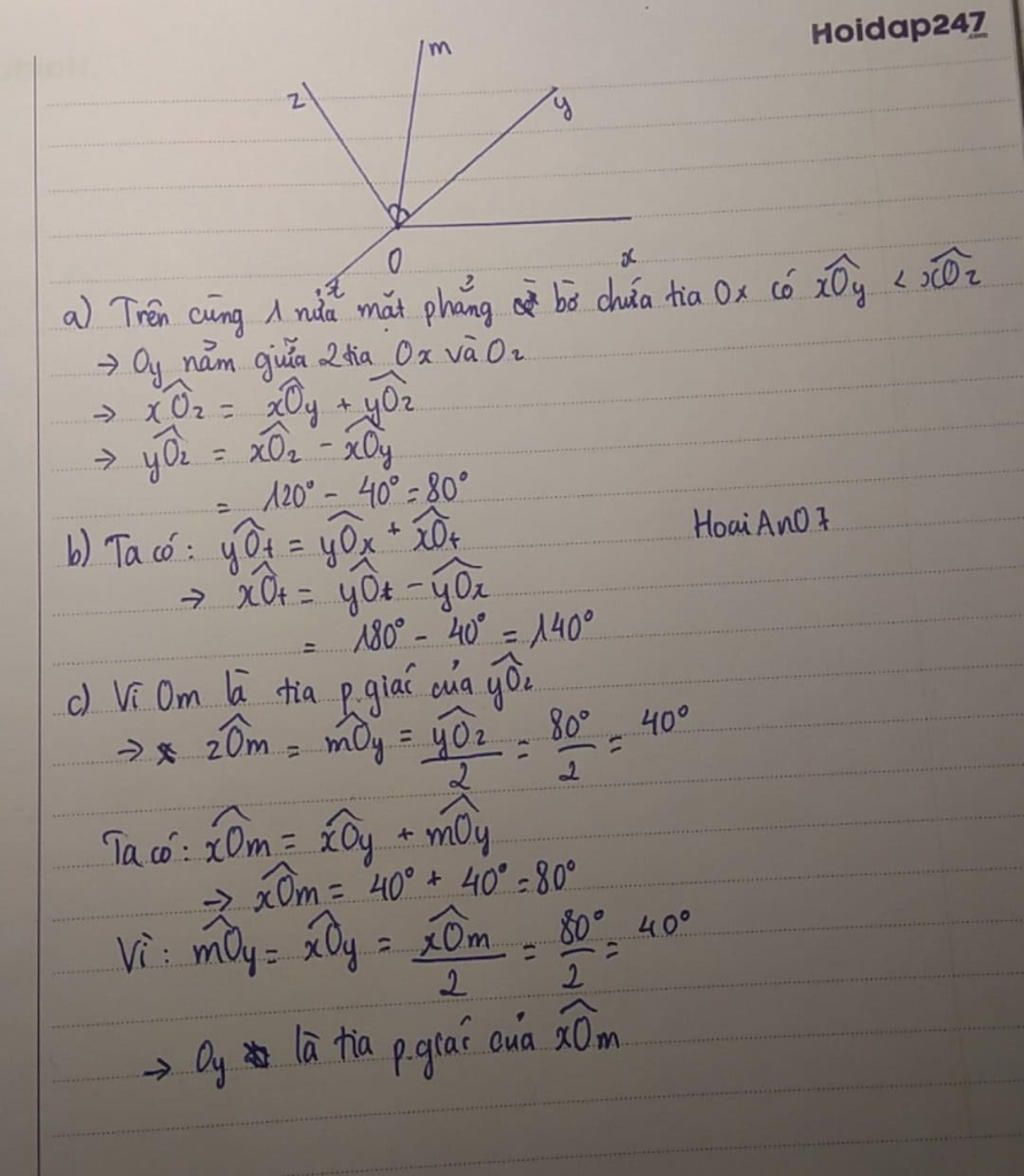 Hoidap247
.com
m
z
y
O
x
t
a) Trên cùng 1 nửa mặt phẳng bờ chứa tia Ox có xÔy < xÔz
→ Oy nằm giữa 2 tia Ox và Oz
→ xÔz = xÔy + yÔz
→ yÔz = xÔz - xÔy
= 120° - 40° = 80°
HoaiAn07
b) Ta có: yÔt = yÔx + xÔt
→ xÔt = yÔt - yÔx
= 180° - 40° = 140°
c) Vì Om là tia p.giác của yÔz
→ zÔm = mÔy = yÔz/2 = 80°/2 = 40°
Ta có: xÔm = xÔy + mÔy
→ xÔm = 40° + 40° = 80°
Vì: mÔy = xÔy = xÔm/2 = 80°/2 = 40°
→ Oy là tia p.giác của xÔm